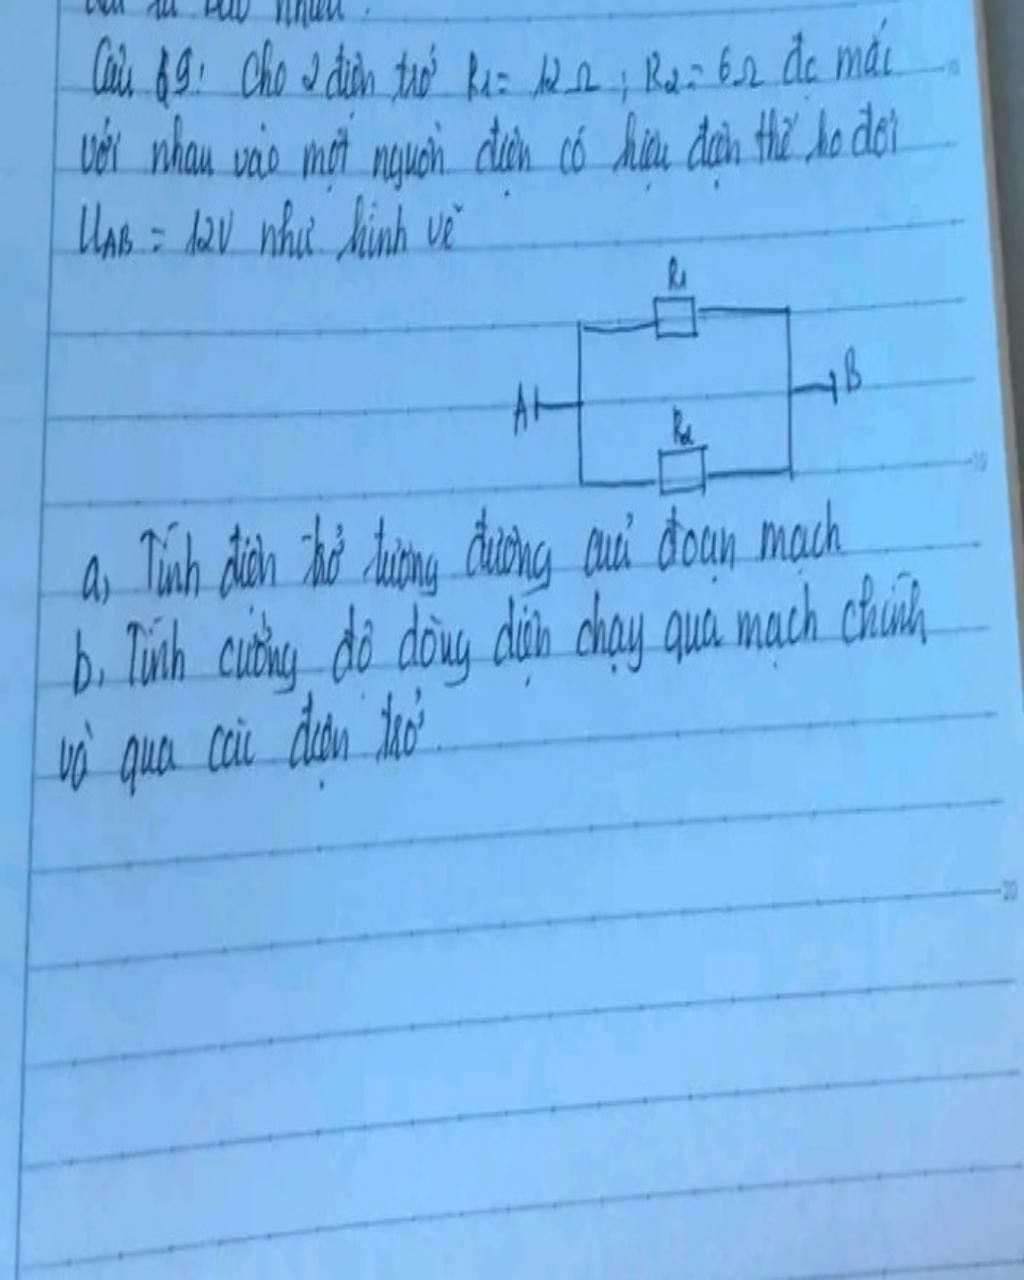 Câu 89: Cho 2 điện trở R1 = 12Ω ; R2 = 6Ω đc mắc
với nhau vào một nguồn điện có hiệu điện thế ko đổi
UAB = 12V như hình vẽ
R1
A
B
R2
a, Tính điện trở tương đương của đoạn mạch
b, Tính cường độ dòng điện chạy qua mạch chính
và qua các điện trở.
20